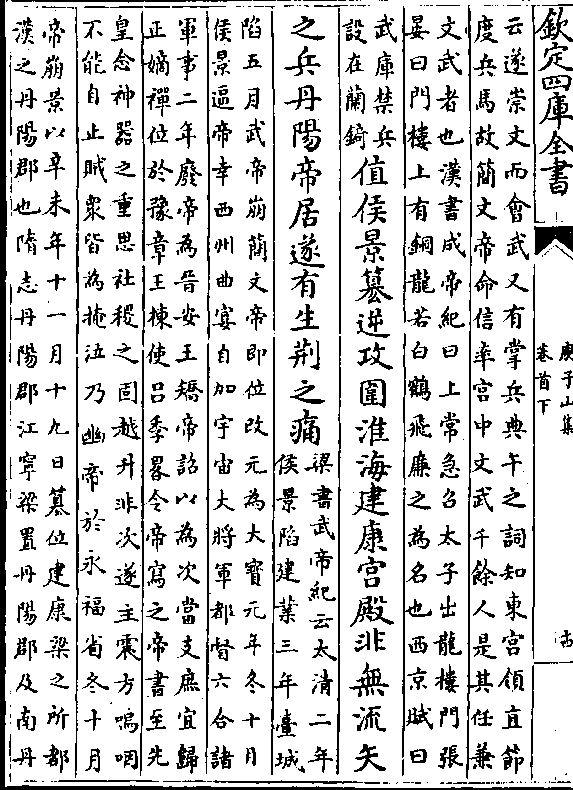 欽定四庫全書
庾子山集
卷首下
云遂崇文而會武又有掌兵典午之詞知東宮領直節
度兵馬故簡文帝命信率宮中文武千餘人是其任兼
文武者也漢書成帝紀曰上常急召太子出龍樓門張
晏曰門樓上有銅龍若白鶴飛廉之為名也西京賦曰
武庫禁兵
設在蘭錡
值侯景簒逆攻圍淮海建康宮殿非無流矢
之兵丹陽帝居遂有生荊之痛
梁書武帝紀云太清二年
侯景陷建業三年臺城
陷五月武帝崩簡文帝即位改元為大寶元年冬十月
侯景逼帝幸西州曲宴自加宇宙大將軍都督六合諸
軍事二年廢帝為晉安王矯帝詔以為次當支庶宜歸
正嫡禪位於豫章王棟使呂季畧令帝寫之帝書至先
皇念神器之重思社稷之固越升非次遂主震方嗚咽
不能自止賊衆皆為掩泣乃幽帝於永福省冬十月
帝崩景以辛未年十一月十九日簒位建康梁之所都
漢之丹陽郡也隋志丹陽郡江寧梁置丹陽郡及南丹